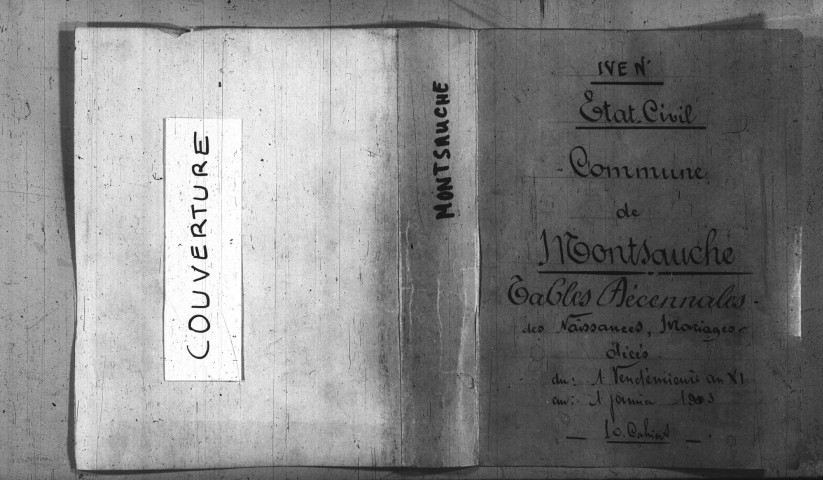 COUVERTURE
MONTSAUCHE
IVE N°
Etat Civil
Commune
de
Montsauche
Tables Décennales
des Naissances, Mariages
décès
du: 1 Vendémiaire an XI
au: 1 janvier 1903
10. Cahiers